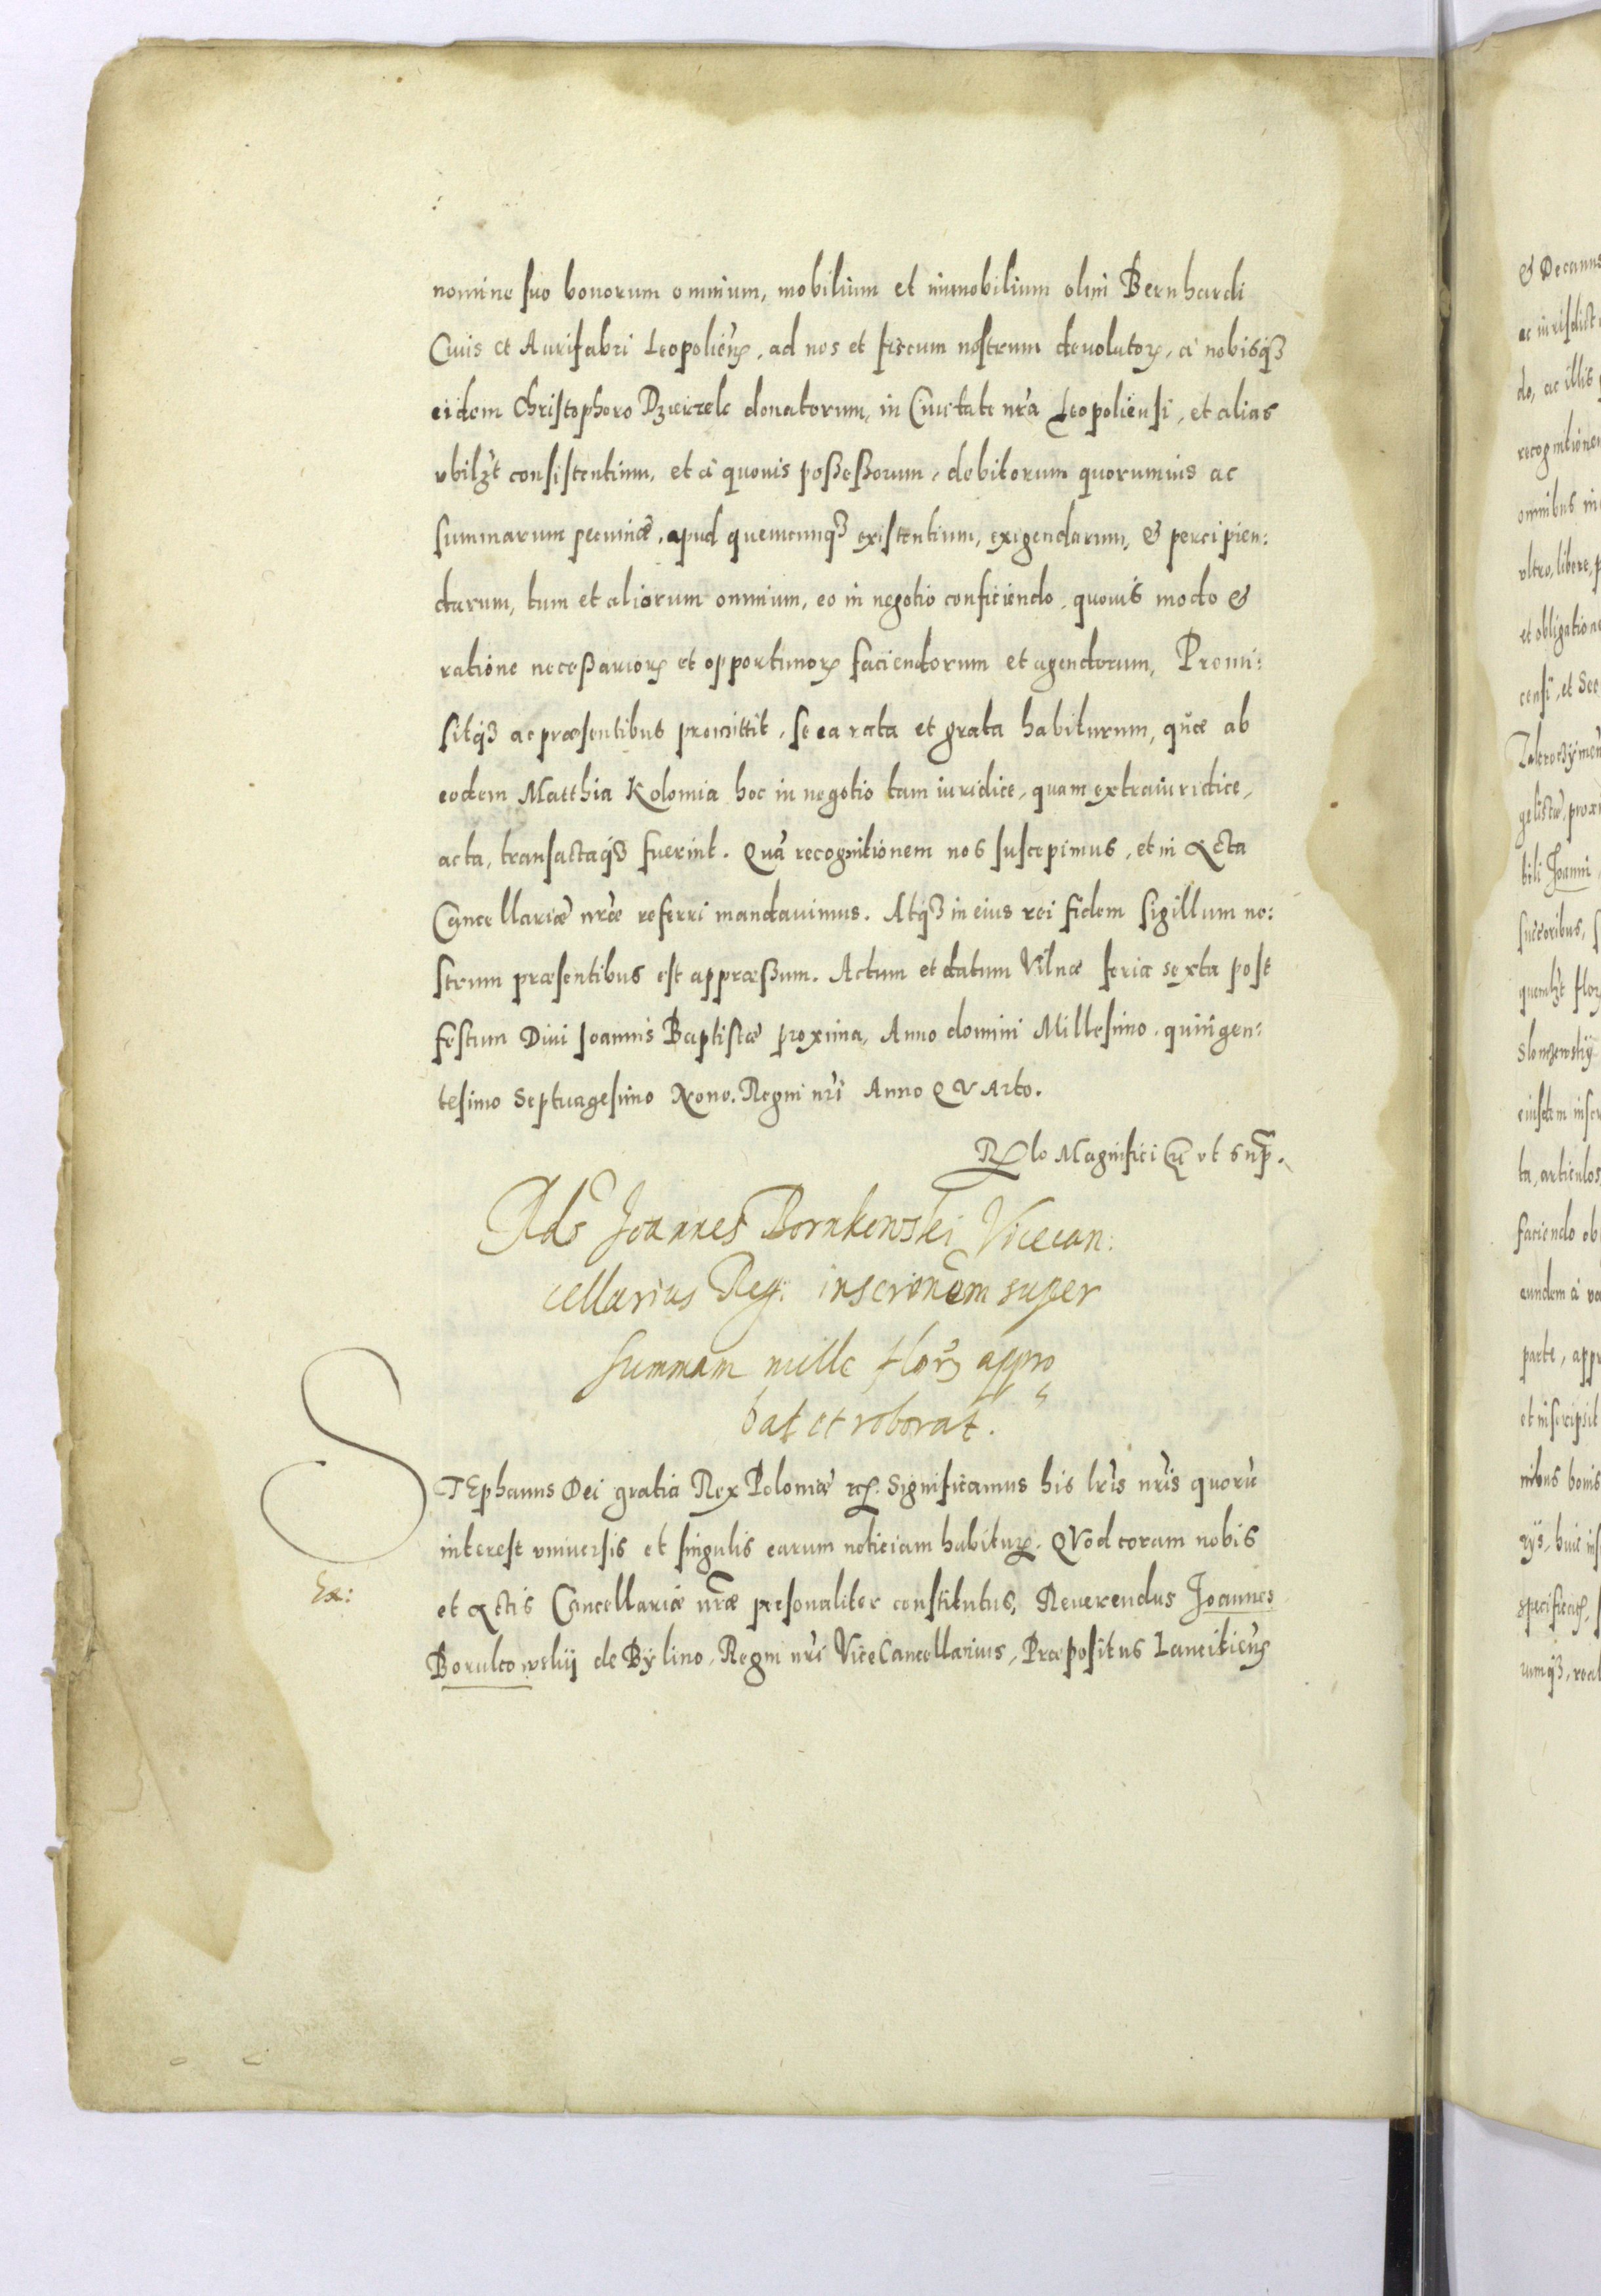 nomine suo bonorum omnium, mobilium et immobilium olim Bernhardi
Civis et Aurifabri Leopolien̄, ad nos et fiscum nostrum devolutoꝝ, à nobisqꝫ
eidem Christophoro Dzierzek donatorum, in Civitate nr̄a Leopoliensi, et alias
vbilꝫt consistentium, et à quovis possessorum, debitorum quorumvis ac
summarum pecuniæ, apud quemcunqꝫ existentium, exigendarum, & percipien:
darum, tum et aliorum omnium, eo in negotio conficiendo, quovis modo &
ratione necessarioꝝ et opportunoꝝ faciendorum et agendorum, Promi:
sitqꝫ ac præsentibus promittit, se ea rata et grata habiturum, quæ ab
eodem Matthia Kolomia hoc in negotio tam iuridice, quam extraiuridice,
acta, transactaqꝫ fuerint. Quā recognitionem nos suscepimus, et in Acta
Cancellariæ nr̄æ referri mandavimus. Atqꝫ in eius rei fidem sigillum no:
strum præsentibus est appræssum. Actum et datum Vilnæ feria sexta post
festum Divi Joannis Baptistæ proxima, Anno domini Millesimo quingen:
tesimo Septuagesimo Nono. Regni nr̄i Anno QVArto.
Rlo Magnifici Ca͂ vt sup̄.
Rds Joannes Borukowski Vicecan:
cellarius Reg: inscrion̄em super
summam mille floꝝ appro
bat et roborat.
STEphanus Dei gratia Rex Poloniæ etc. Significamus his lr̄is nr̄is quorū
interest vniversis et singulis earum noticiam habituꝝ. QVod coram nobis
Ex:
et Actis Cancellariæ nr̄æ personaliter constitutus, Reverendus Joannes
Borukowskij de Bylino, Regni nr̄i ViceCancellarius, Præpositus Lancicien̄
& Decanus
ac iurisdict
do, ac illis
recognitione
omnibus
vltro, libere,
et obligatione
bili Joanni
eiusdem
ta, articulos
faciendo ob
eundem à
parte,
et inscripsit